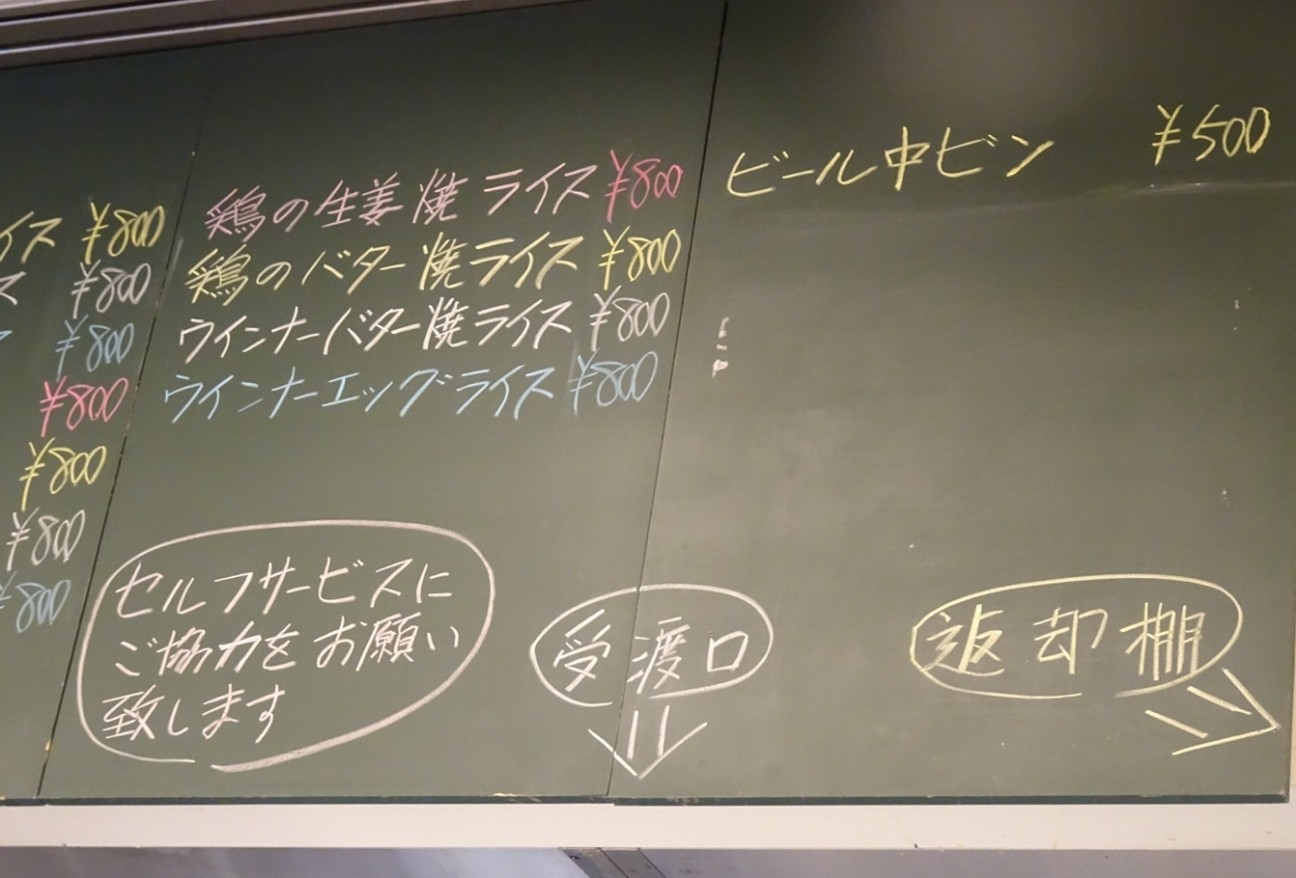 イス ¥800
ス ¥800
¥800
¥800
¥800
¥800
¥800
鶏の生姜焼ライス ¥800
鶏のバター焼ライス ¥800
ウインナーバター焼ライス ¥800
ウインナーエッグライス ¥800
セルフサービスに
ご協力をお願い
致します
受渡口
ビール中ビン ¥500
返却棚